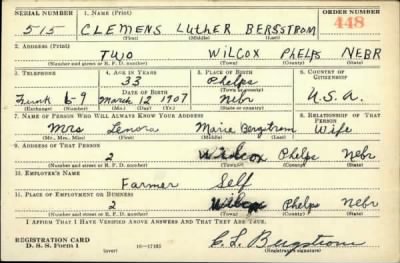 SERIAL NUMBER 1. NAME (Print) ORDER NUMBER
515 CLEMENS LUTHER BERGSTROM 448
(First) (Middle) (Last)
2. ADDRESS (Print)
TWO WILCOX PHELPS NEBR
(Number and street or R. F. D. number) (Town) (County) (State)
3. TELEPHONE 4. AGE IN YEARS 5. PLACE OF BIRTH 6. COUNTRY OF CITIZENSHIP
33 Phelps
DATE OF BIRTH (Town or county)
Funk 6-9 March 12 1907 Nebr U.S.A.
(Exchange) (Number) (Mo.) (Day) (Yr.) (State or country)
7. NAME OF PERSON WHO WILL ALWAYS KNOW YOUR ADDRESS 8. RELATIONSHIP OF THAT PERSON
Mrs Lenora Marie Bergstrom Wife
(Mr., Mrs., Miss) (First) (Middle) (Last)
9. ADDRESS OF THAT PERSON
2 Wilcox Phelps Nebr
(Number and street or R. F. D. number) (Town) (County) (State)
10. EMPLOYER'S NAME
Farmer Self
11. PLACE OF EMPLOYMENT OR BUSINESS
2 Wilcox Phelps Nebr
(Number and street or R. F. D. number) (Town) (County) (State)
I AFFIRM THAT I HAVE VERIFIED ABOVE ANSWERS AND THAT THEY ARE TRUE.
REGISTRATION CARD
D. S. S. Form 1 (over) 16-17105 C. L. Bergstrom